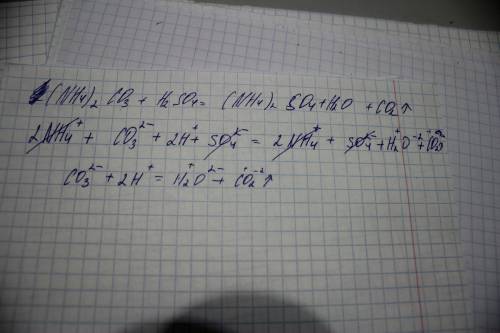 (NH₄)₂ CO₃ + H₂SO₄ = (NH₄)₂ SO₄ + H₂O + CO₂↑
2NH₄⁺ + CO₃²⁻ + 2H⁺ + SO₄²⁻ = 2NH₄⁺ + SO₄²⁻ + H₂⁺O⁻² + CO₂↑
CO₃²⁻ + 2H⁺ = H₂⁺O²⁻ + C⁺O₂⁻²↑